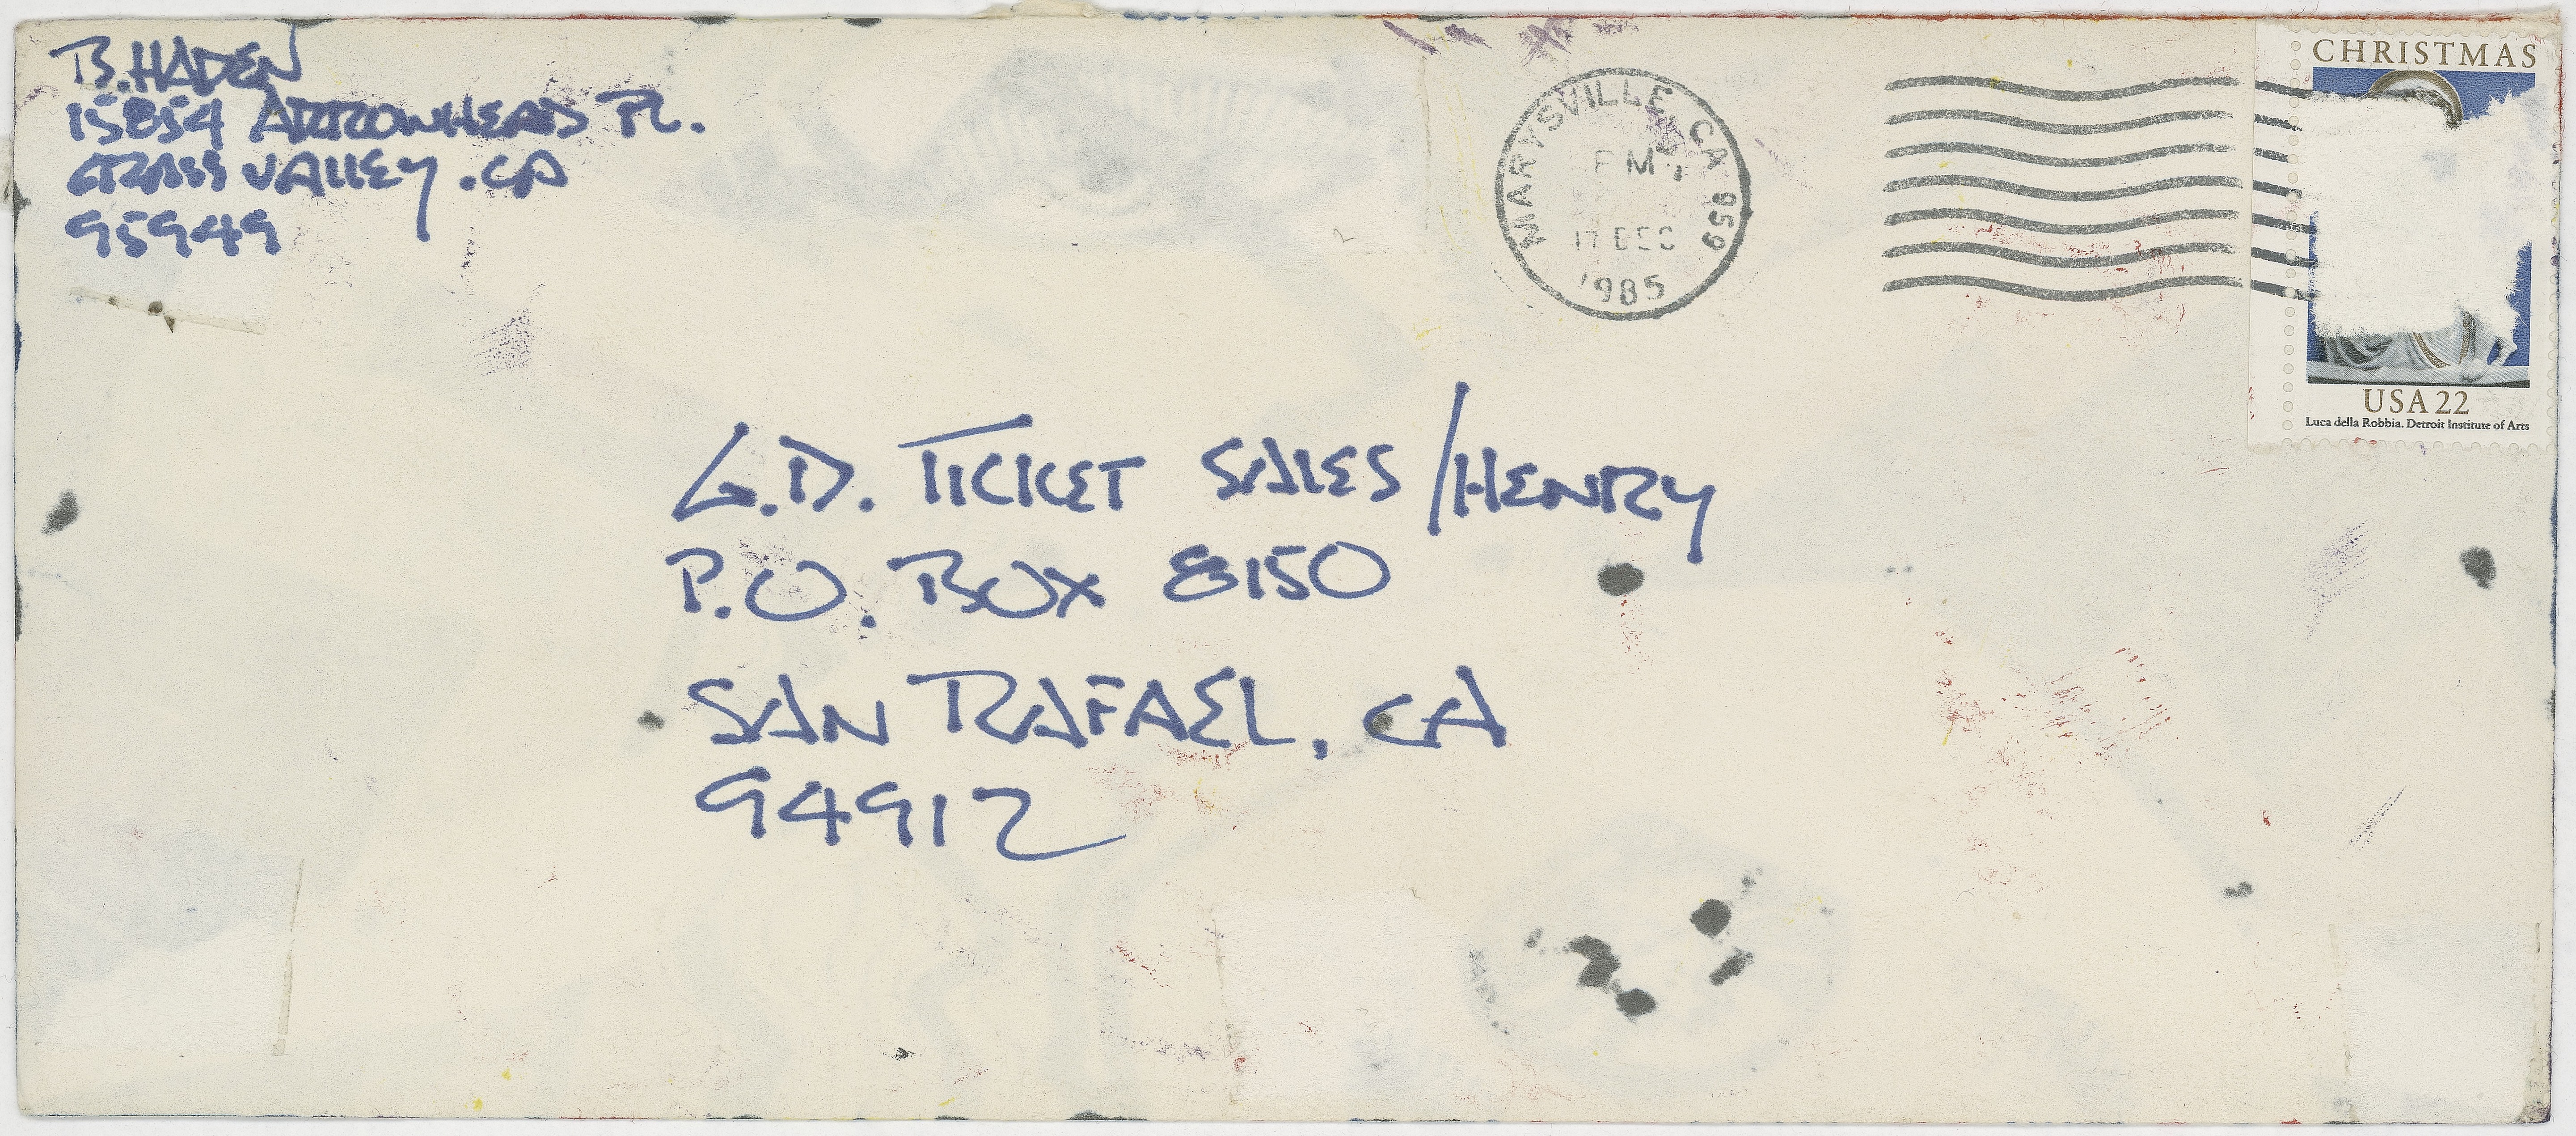 B. HADEN
15854 ARROWHEAD PL.
GRASS VALLEY, CA
95949
MARYSVILLE, CA 959
PM
17 DEC
1985
CHRISTMAS
USA 22
Luca della Robbia. Detroit Institute of Arts
G.D. TICKET SALES/HENRY
P.O. BOX 8150
SAN RAFAEL, CA
94912